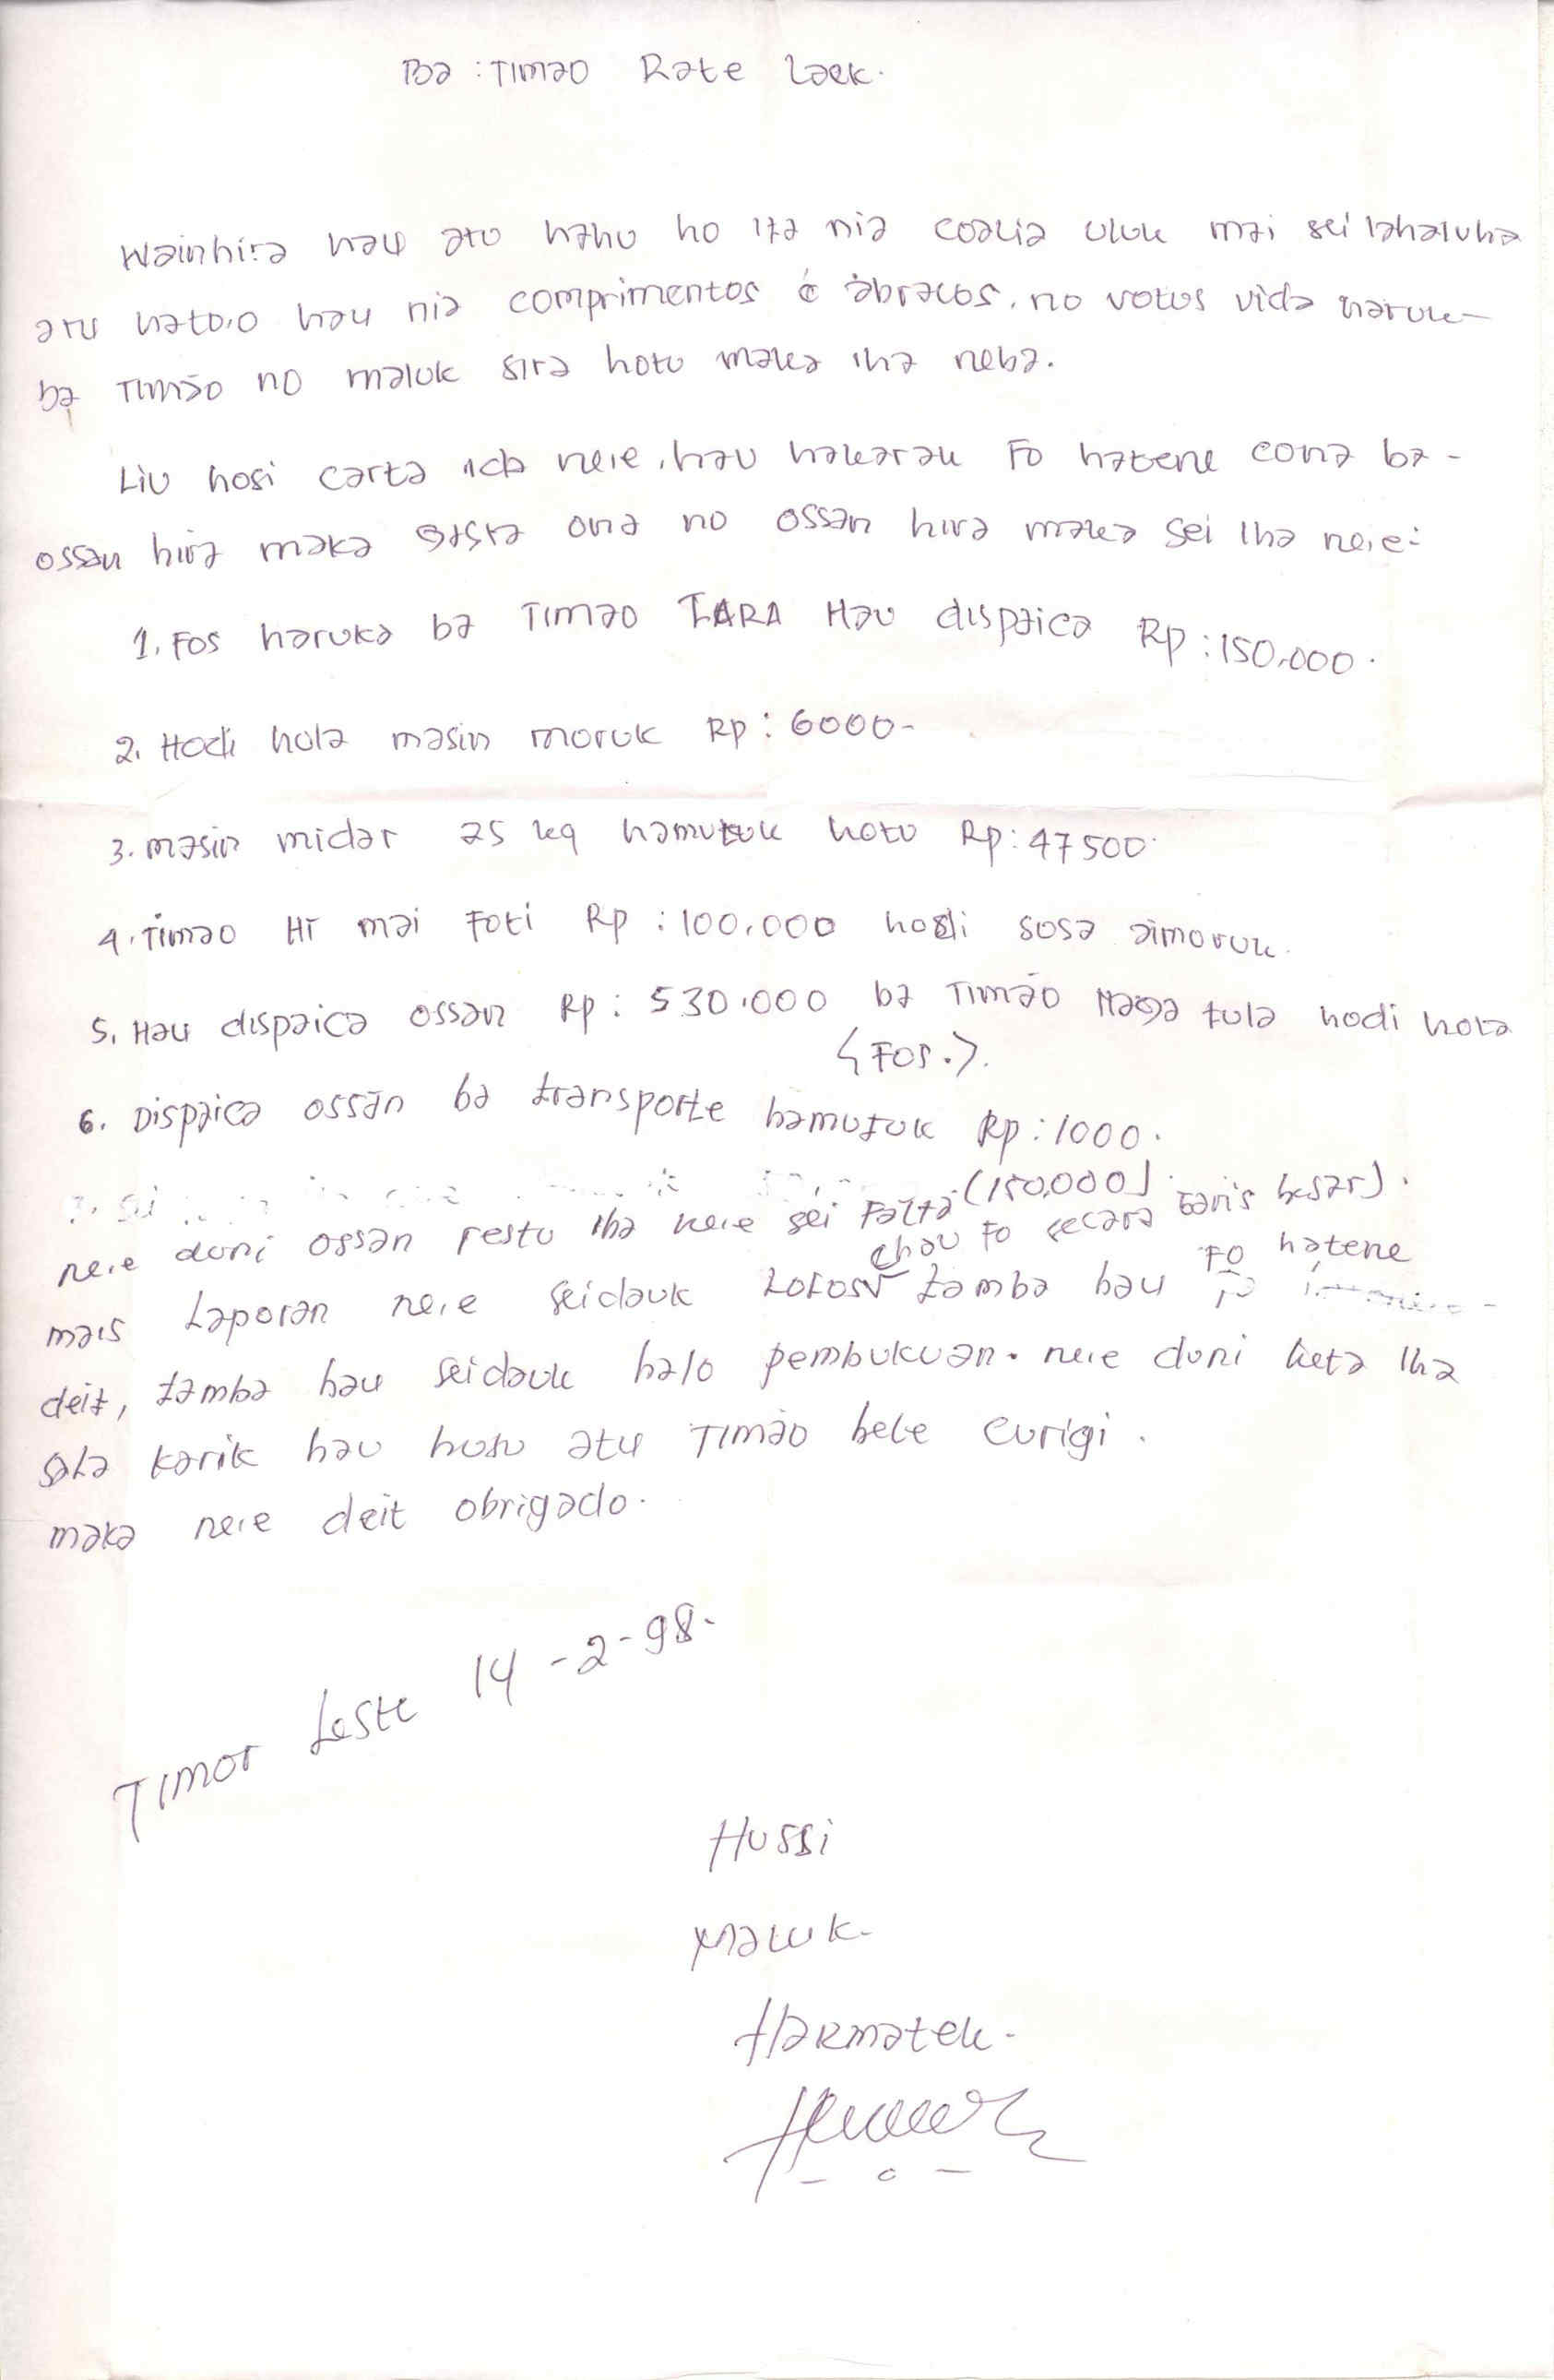 Ba : Timao Rate Laek.
Wainhira hau atu hahu ho ita nia coalia uluk mai sei lahaluha
atu hato.o hau nia comprimentos é abracos, no votus vida naruk
ba Timão no maluk sira hotu maka iha neba.
Liu hosi carta ida ne.e, hau hakarak Fo hatene cona ba -
ossan hira maka gasta ona no ossan hira maka sei Iha ne.e:
1. Fos haruka ba Timao TARA Hau dispaica Rp : 150.000.
2. Hodi hola masin moruk Rp : 6000-
3. masin midar 25 kg hamutuk hotu Rp : 47500.
4. Timao HT mai Foti Rp : 100.000 hodi sosa aimoruk.
5. Hau dispaica ossan Rp : 530.000 ba Timão Naga tula hodi hola
(Fos.).
6. Dispaica ossan ba transporte hamutuk Rp : 1000.
ne.e duni ossan restu Iha ne.e sei Falta (150,000)
(hau fo secara garis besar).
mais Laporan ne.e seidauk Lolos tamba hau Fo hatene
deit, tamba hau seidauk halo pembukuan. ne.e duni keta Iha
sala karik hau husu atu Timão bele curigi.
maka ne.e deit obrigado.
Timor Leste 14-2-98.
Hussi
Maluk-
Hakmatek-